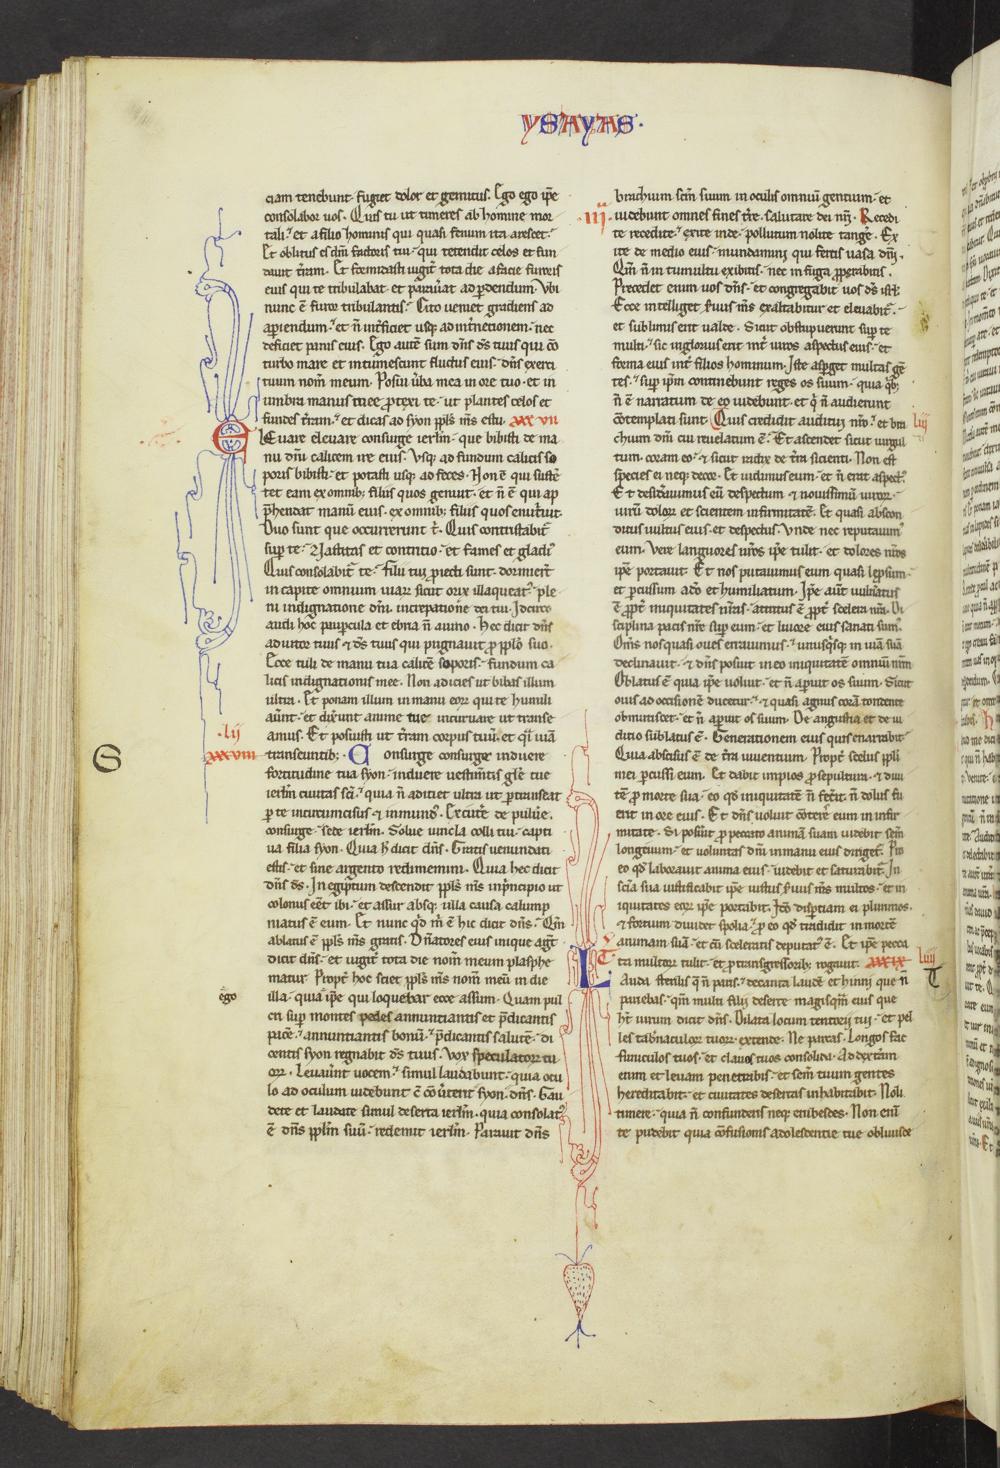 YSAYAS·
ciam tenebunt· fugiet dolor et gemitus. Ego ego ip̄e
consolabor uos. Quis tu ut timeres ab homine mor
tali· et a filio hominis qui quasi fenum ita arescet·
Et oblitus es dn̄i factoris tui· qui tetendit celos et fun
dauit t̄ram. Et formidasti iugit̄ tota die a facie furoris
eius qui te tribulabat· et parau̓at ad ꝑdendum· Vbi
nunc ē furor tribulantis· Cito ueniet gradiens ad
aꝑiendum· et n̄ int̄ficiet usq̧ ad int̓netionem· nec
deficiet panis eius. Ego autē sum dn̄s ds̄ tuus qui cō
turbo mare et intumescunt fluctus eius· dn̄s exerci
tuum nom̄ meum. Posui u̓ba mea in ore tuo· et in
umbra manus mee ꝓtexi te· ut plantes celos et
fundes t̄ram· et dicas ad syon ppl̄s m̄s es tu. XXVII
ELEuare eleuare consurge ierl̄m· que bibisti de ma
nu dn̄i calicem ire eius. Vsq̧ ad fundum calicis so
poris bibisti· et potasti usq̧ ad feces. Non ē qui sustē
tet eam ex omnib; filiis quos genuit· et n̄ ē qui ap
p̄hendat manū eius· ex omnib; filiis quos enut̓uit·
Duo sunt que occurrerunt t̄· Quis contristabit̄
suꝑ te· Vastitas et contritio· et fames et gladi᷒
Quis consolabit̄ te· filii tui ꝓiecti sunt· dormiert̄
in capite omnium uiar̄ sicut orix illaqueat᷒· ple
ni indignatione dn̄i· increpatione dei tui· Idcirco
audi hoc paupercula et ebria n̄ a uino· Hec dicit dn̄s
adiutor tuus et ds̄ tuus qui pugnauit ꝓ ppl̄o suo·
Ecce tuli de manu tua calicē soporis· fundum ca
licis indignationis mee. Non adicies ut bibas illum
ultra. Et ponam illum in manu eoꝝ qui te humili
auūt· et dixerunt anime tue· incuruare ut transe
amus. Et posuisti ut t̄ram corpus tuū· et q̄i uiā
·lij·
XXVIII
S
transeuntib;· Consurge consurge induere
fortitudine tua syon· induere uestim̄tis gl̄e tue
ierl̄m ciuitas sc̄i· quia n̄ adiciet ultra ut ꝑtranseat
ꝑ te incircumcisus et inmund᷒. Excut̄e de puluīe·
consurge· sede ierl̄m. Solue uincla colli tui· capti
ua filia syon. Quia h̄ dicit dn̄s. Gratis uenundati
estis· et sine argento redimemini. Quia hec dicit
dn̄s ds̄. In egiptum descendit ppl̄s m̄s in p̓ncipio ut
colonus eēt ibi· et assur absq̧ ulla causa calump
niatus ē eum. Et nunc q̓d m̓ ē hic dicit dn̄s· Qm̄
ablatus ē ppl̄s m̄s gratis. Dn̄atores eius inique agt̄
dicit dn̄s· et iugit̄ tota die nom̄ meum plasphe
matur. Propt̄ hoc sciet ppl̄s m̄s nom̄ meū in die
ego
illa· quia ip̄e qui loquebar ecce assum· Quam pul
cri suꝑ montes pedes annuntiantis et p̄dicantis
pacē· annuntiantis bonū· p̄dicantis salutē· di
centis syon regnabit ds̄ tuus. Vox speculatoꝝ tu
oꝝ. Leuauīnt uocem simul laudabunt· quia ocu
lo ad oculum uidebunt cū cōu̓terit syon· dn̄s. Gau
dete et laudate simul deserta ierl̄m· quia consolat᷒
ē dn̄s ppl̄m suū· redemit ierl̄m· Parauit dn̄s
brachium scm̄ suum in oculis omniū gentium· et
·iij·
uidebunt omnes fines t̄re· salutare dei nr̄i· Recedi
te recedite· exite inde· pollutum nolite tangē· Ex
ite de medio eius· mundamini qui fertis uasa dn̄i·
Qm̄ n̄ in tumultu exibitis· nec in fuga ꝓꝑabitis·
Precedet enim uos dn̄s· et congregabit uos ds̄ isr̄l·
Ecce intelliget s̓uus m̄s exaltabitur et eleuabit̄·
et sublimis erit ualde. Sicut obstupuerunt suꝑ te
multi· sic inglorius erit int̄ uiros aspectus eius· et
forma eius int̄ filios hominum. Iste aspget multas gē
tes· suꝑ ip̄m continebunt reges os suum· quia q̓b;
n̄ ē narratum de eo uiderunt· et q̓ n̄ audierunt
cōtemplati sunt· Quis credidit auditui nr̄o· et bra
liij
chium dn̄i cui reuelatum ē· Et ascendet sicut uirgul
tum· coram eo· et sicut radix de t̄ra sicienti. Non est
species ei neq̧ decor. Et uidimus eum· et n̄ erat aspect᷒
Et desiderauimus eū despectum et nouissimū uiroꝝ·
uirū doloꝝ et scientem infirmitatē. Et quasi abscon
ditus uultus eius· et despectus· Vnde nec reputauim᷒
eum. Vere languores nr̄os ip̄e tulit· et dolores nr̄os
ip̄e portauit· Et nos putauimus eum quasi leprosum·
et ꝑcussum a dō et humiliatum· Ip̄e aut̄ uulnatus
ē ꝓpt̄ iniquitates nr̄as· attritus ē ꝓpt̄ scelera nr̄a· Di
sciplina pacis nr̄e suꝑ eum· et liuore eius sanati sum᷒·
Om̄s nos quasi oues errauimus· unusq̓sq̧ in uiā suā
declinauit· et dn̄s posuit in eo iniquitatē omniū nr̄m
Oblatus ē quia ip̄e uoluit· et n̄ aꝑuit os suum· Sicut
ouis ad occisionē ducetur· et quasi agnus corā tondente
obmutescet· et n̄ aꝑuit os suum· De angustia et de iu
dicio sublatus ē· Generationem eius quis enarrabit·
Quia abscisus ē de t̄ra uiuentium· Propt̄ scelus ppl̄i
mei ꝑcussi eum· Et dabit impios ꝓ sepultura· et diui
tē ꝓ morte sua· eo qd̓ iniquitatē n̄ fec̄it· n̄ dolus fu
erit in ore eius. Et dn̄s uoluit cōterē eum in infir
mitate. Si posūit ꝓ peccato animā suam uidebit sem̄
longeuum· et uoluntas dn̄i in manu eius dirīget· Pro
eo qd̓ laborauit anima eius· uidebit et saturabit̄· In
scīa sua iustificabit ip̄e iustus s̓uus m̄s multos· et in
iquitates eoꝝ ip̄e portabit. Idō disꝑtiam ei plurimos·
et fortium diuidet spolia ꝓ eo qd̓ tradidit in mortē
animam suā· et cū sceleratis deputat᷒ ē. Et ip̄e pecca
ta multoꝝ tulit· et ꝓ transgressorib; rogauit· XXIX
liiij
T
Lauda sterilis q̄ n̄ paris· decanta laudē et hinni que n̄
pariebas· qm̄ multi filii deserte magis q̄m eius que
ht̄ uirum dicit dn̄s. Dilata locum tentorij tui· et pel
les tab̄naculoꝝ tuoꝝ extende· Ne parcas. Longos fac
funiculos tuos· et clauos tuos consolida· Ad dext̓am
enim et leuam penetrabis· et sem̄ tuum gentes
hereditabit· et ciuitates desertas inhabitabit· Noli
timere· quia n̄ confunderis neq̧ erubesces· Non eni
te pudebit quia cōfusionis adolescentie tue obliuisce